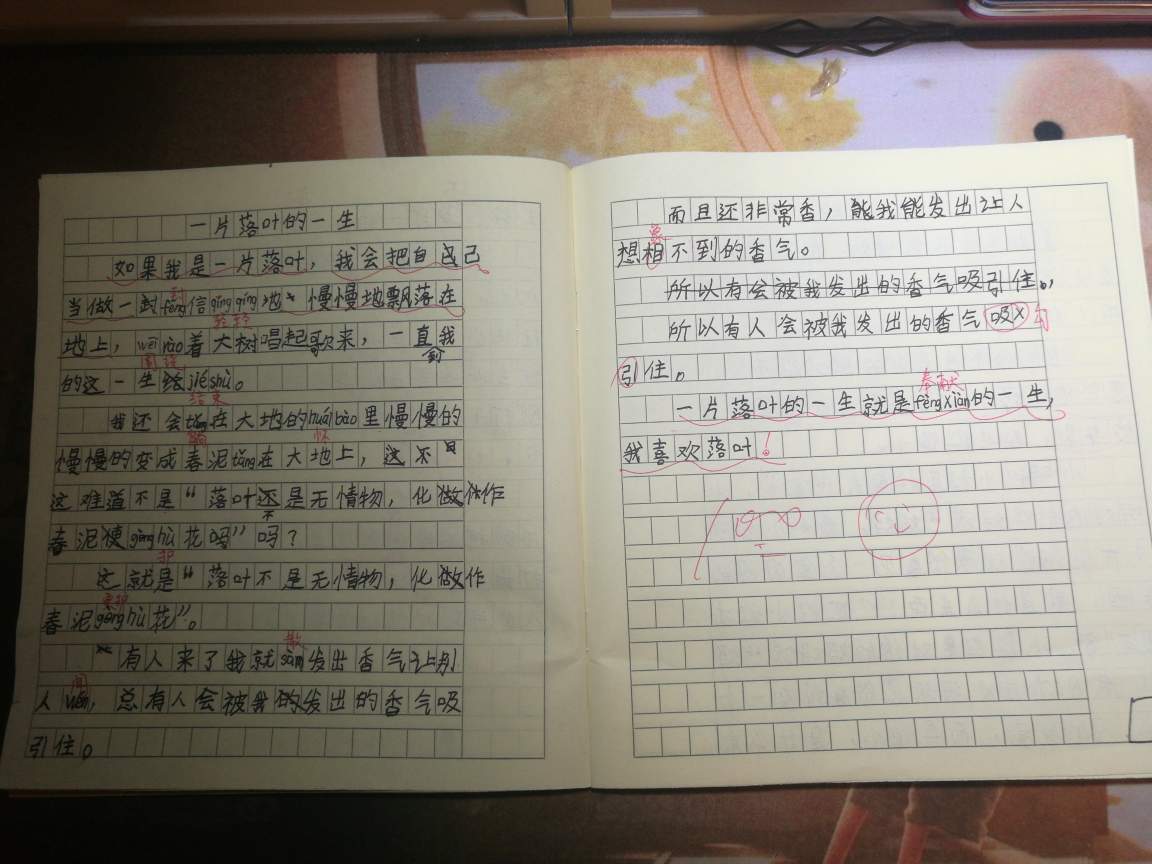 一片落叶的一生
如果我是一片落叶，我会把自己
当做一封fēng信qīngqīng地慢慢地飘落在
封
轻轻
地上，wéi rào着大树唱起歌来，一直到我
围绕
的这一生jiéshù。
结束
我还会tǎng在大地的huái bào里慢慢的
躺
怀
慢慢的变成春泥tǎng在大地上，这不
这难道不是“落叶不是无情物，化作
春泥更gèng hù花吗”吗？
护
这就是“落叶不是无情物，化作
春泥gèng hù花”。
更护
散
有人来了我就sàn发出香气让别
闻
人wén，总有人会被我的发出的香气吸
引住。
而且还非常香，能我能发出让人
象
想相不到的香气。
所以有会被我发出的香气吸引住。
所以有人会被我发出的香气吸
引住。
奉献
一片落叶的一生就是fèngxiàn的一生，
我喜欢落叶！
100